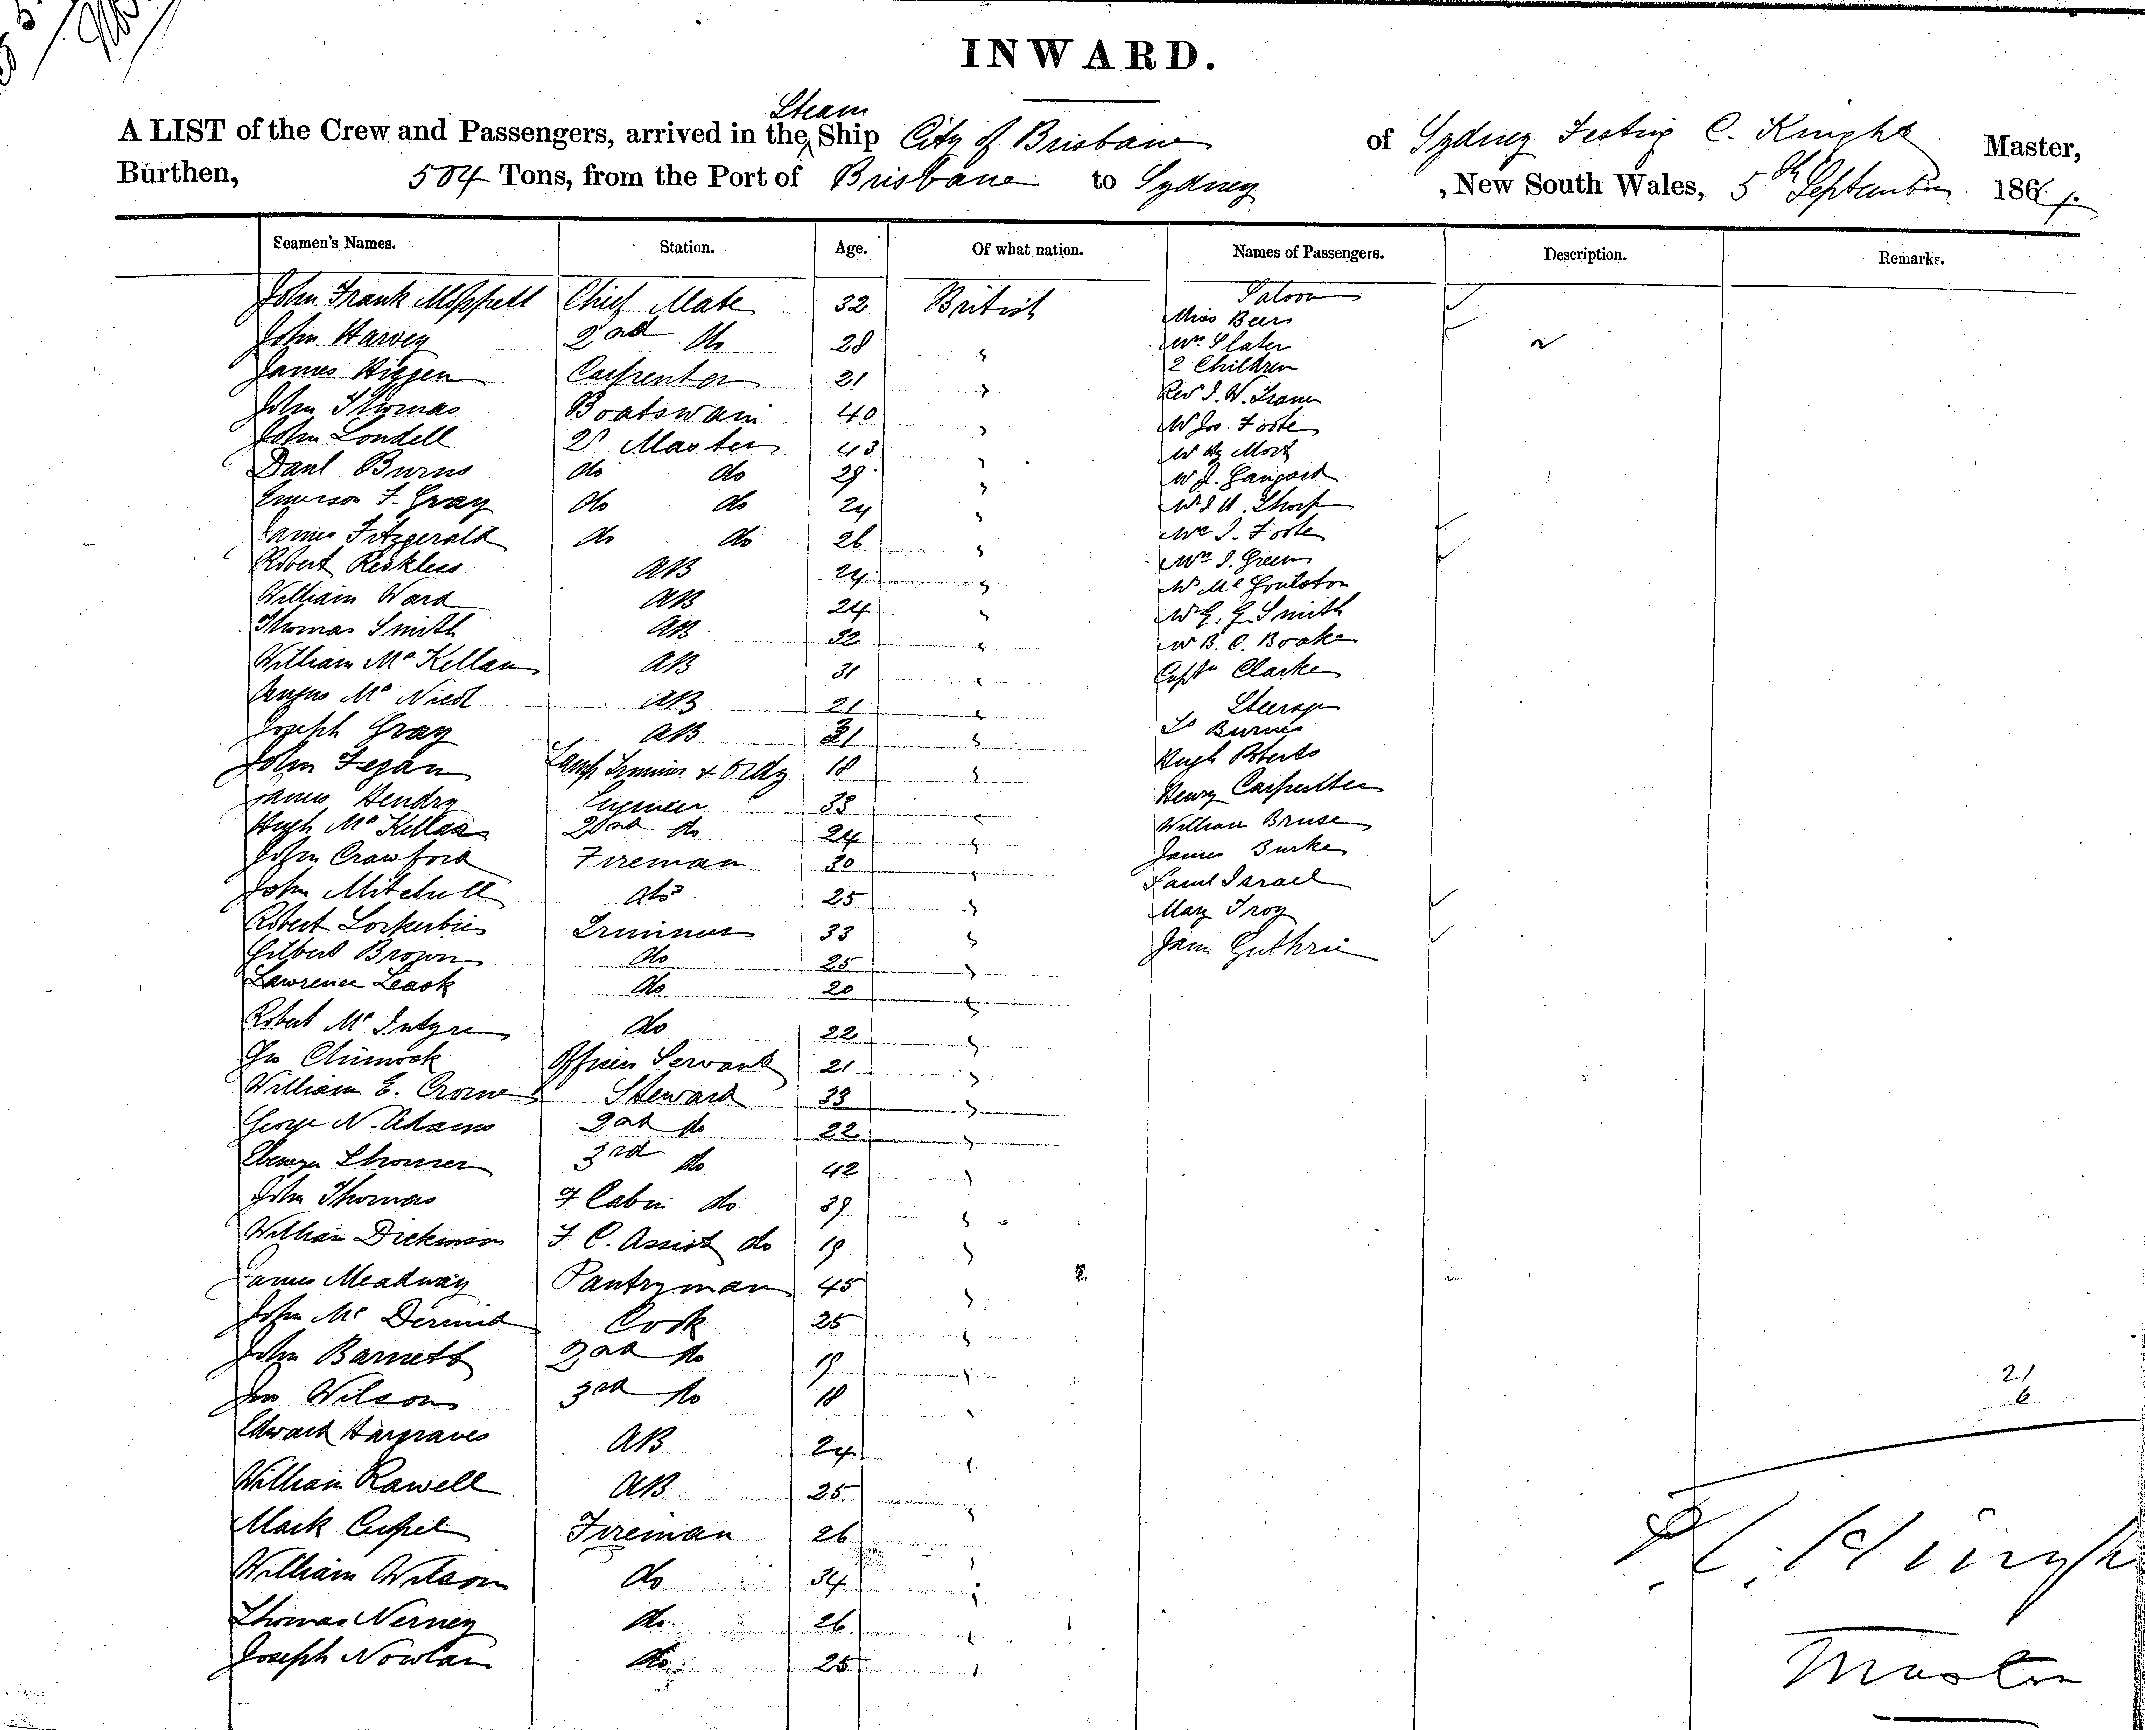 INWARD.
Steam
A LIST of the Crew and Passengers, arrived in the Ship City of Brisbane of Sydney C. Knight Master,
Burthen, 504 Tons, from the Port of Brisbane to Sydney , New South Wales, 5th September 1864.
Seamen's Names. Station. Age. Of what nation. Names of Passengers. Description. Remarks.
John Frank Chief Mate 32 British Saloon
Miss Beers
John Harvey 2nd do 28 " Slater
James 21 " 2 Children
Carpenter
John Thomas Boatswain 40 " Rev J. W.
John Londell Master 43 " Foote
Danl Burns do do 29 " Mort
Emerson F. Gray do do 24 "
James Fitzgerald do do 26 " Foote
Robert Reckless AB 24 " Green
William Ward AB 24 "
Thomas Smith AB 32 " G. Smith
William McKellan AB 31 " B. C.
Captn Clarke
Angus McNiell AB 21 " Steerage
Joseph Gray AB 21 " Burnes
John Fegan Lamp Trimmer & Ordy 18 " Hugh Roberts
James Hendry Engineer 33 " Henry Carpenter
Hugh McKellan 2nd do 24 " William Bruse
John Crawford Fireman 30 " James Burke
John Mitchell do 25 " Saml Israel
Robert Lockerbie Trimmer 33 " Mary Troy
Gilbert Brown do 25 " Guthrie
Lawrence Leask do 20 "
Robert McIntyre do 22 "
Jno Chinnock Officers Servant 21 "
William E. Crome Steward 33 "
George N. Adams 2nd do 22 "
Ebenezer 3rd do 42 "
John Thomas F Cabin do 39 "
William Dickinson F. C. Assist do 19 "
James Meadway Pantryman 45 "
John McDermid Cook 25 "
John Barnett 2nd do 19 "
Jno Wilson 3rd do 18 "
21
6
Edward Hargraves AB 24 "
William Rawell AB 25 "
Mark Fireman 26 "
William Wilson do 34 "
Thomas Nerney do 26 "
Joseph Nowlan do 25 "
Master